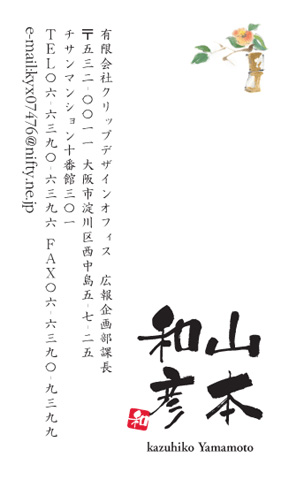 山本
和彦
和
kazuhiko Yamamoto
有限会社クリップデザインオフィス 広報企画部課長
〒五三二-〇〇一一 大阪市淀川区西中島五-七-二五
チサンマンション十番館三〇一
TEL〇六-六三九〇-六三九六 FAX〇六-六三九〇-九三九九
e-mail:kyx07476@nifty.ne.jp